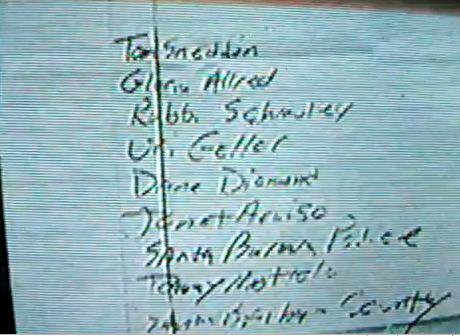 Tom Sneddon
Gloria Allred
Rabbi Schmuley
Uri Geller
Diane Diamond
Janet Arviso
Santa Barbra Police
Tommy
County